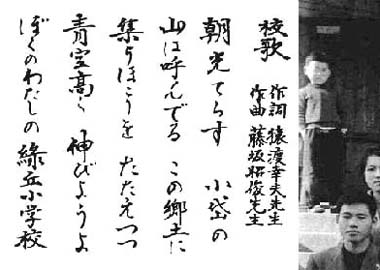 校歌
作詞 猿渡幸夫先生
作曲 藤坂招俊先生
朝光てらす 小岱の
山は呼んでる この郷土に
集うほこりを たたえつつ
青空高く 伸びようよ
ぼくのわたしの 緑丘小学校